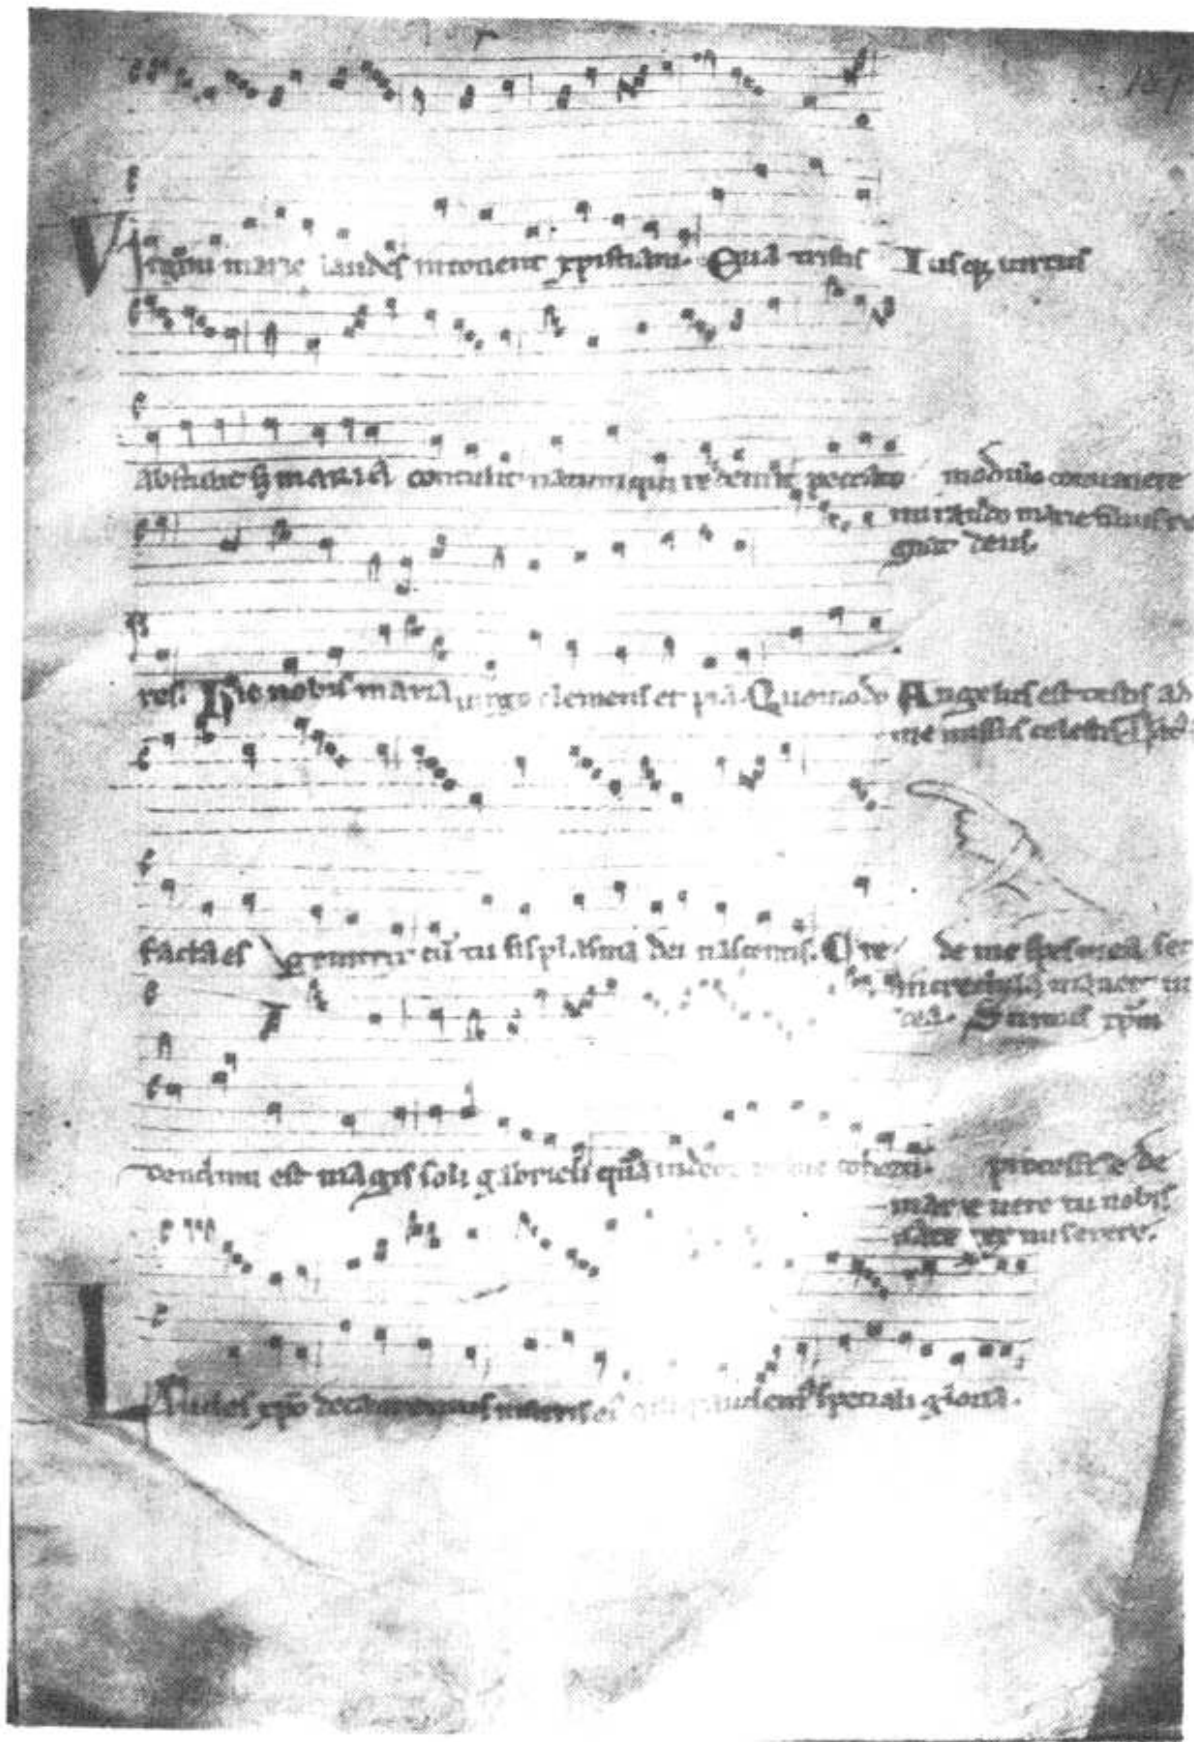 Virgini marie laudes intonent xpistiani. Eua tristis Iusq, virtus
abstulit s; maria contulit natum qui redemit peccato modulo conuenere
mirando marie filius re
gnat deus.
res. Dic nobis maria uirgo clemens et pia. Quomodo Angelus est testis ad
me missus celestis.
facta es genitrix cū tu sis plasma dei nascentis. Cre de me spes mea. set
incredula manet iu
dea. Scimus xpm
dendum est magis soli gabrieli quā iudeor cohorti. processisse de
marie uere tu nobis
nate rex miserere.
Laudes xpo decantemus matris ei speciali gloria.